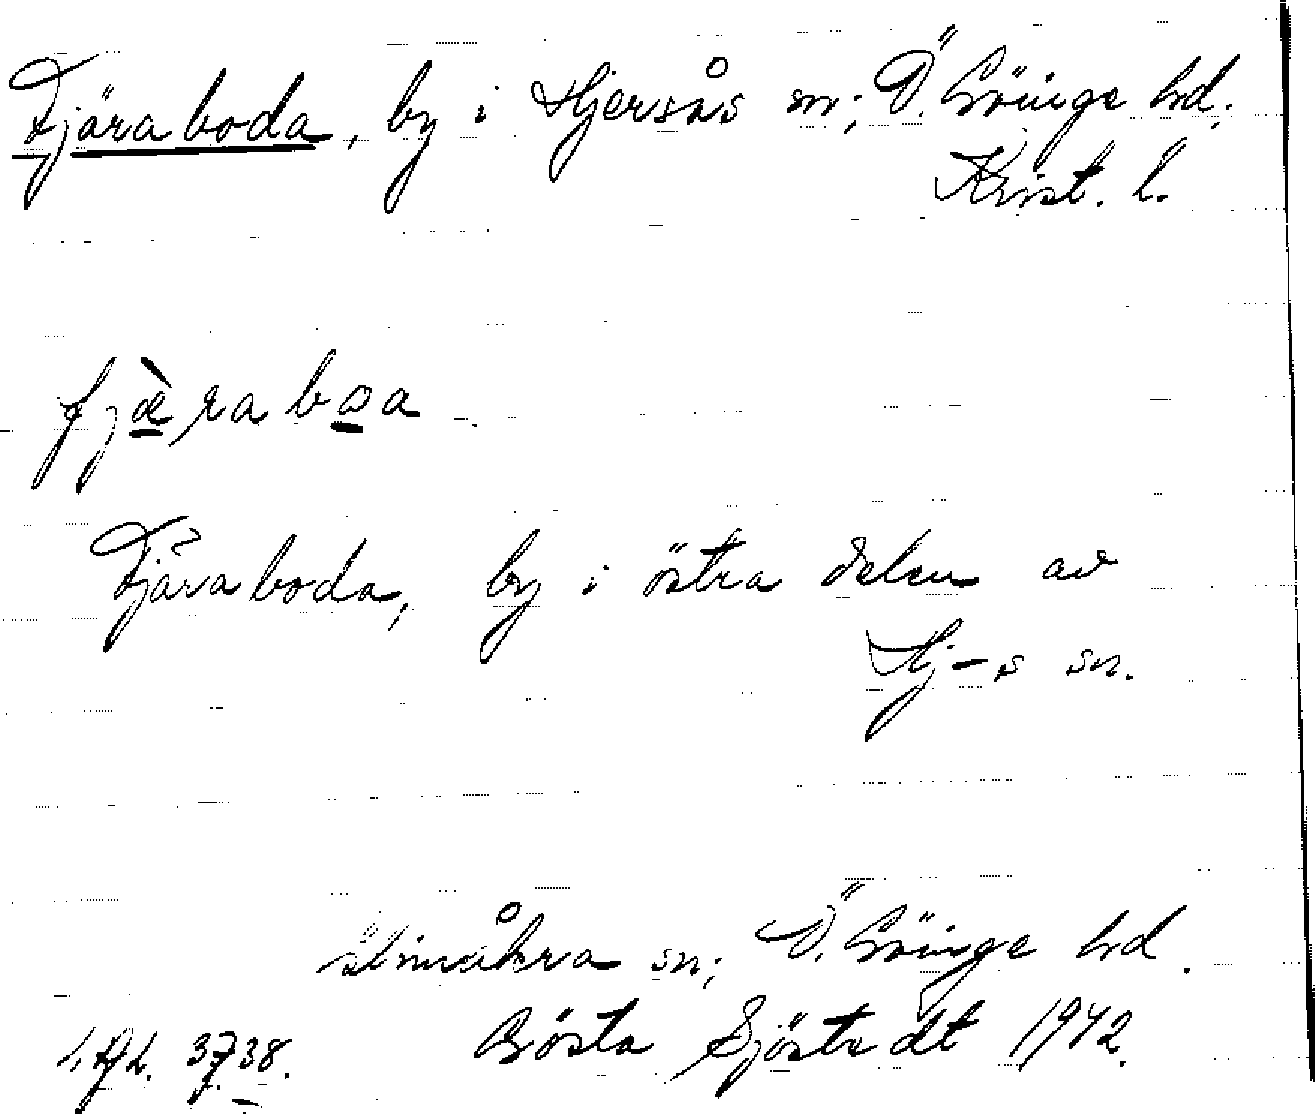 Fjäraboda, by i Hjersås sn; Ö. Göinge hd.
Krist. l.
fjæ̀raboa
Fjäraboda, by i östra delen av
Hj-s sn.
Örkeneds sn; Ö. Göinge hd.
Gösta Sjöstedt 1942.